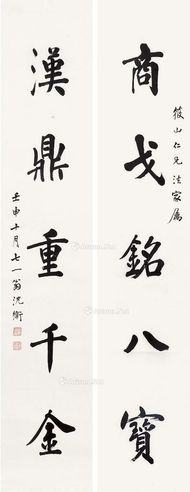 筱山仁兄法家属
商戈銘八寶
漢鼎重千金
壬申十月七一翁沈衛